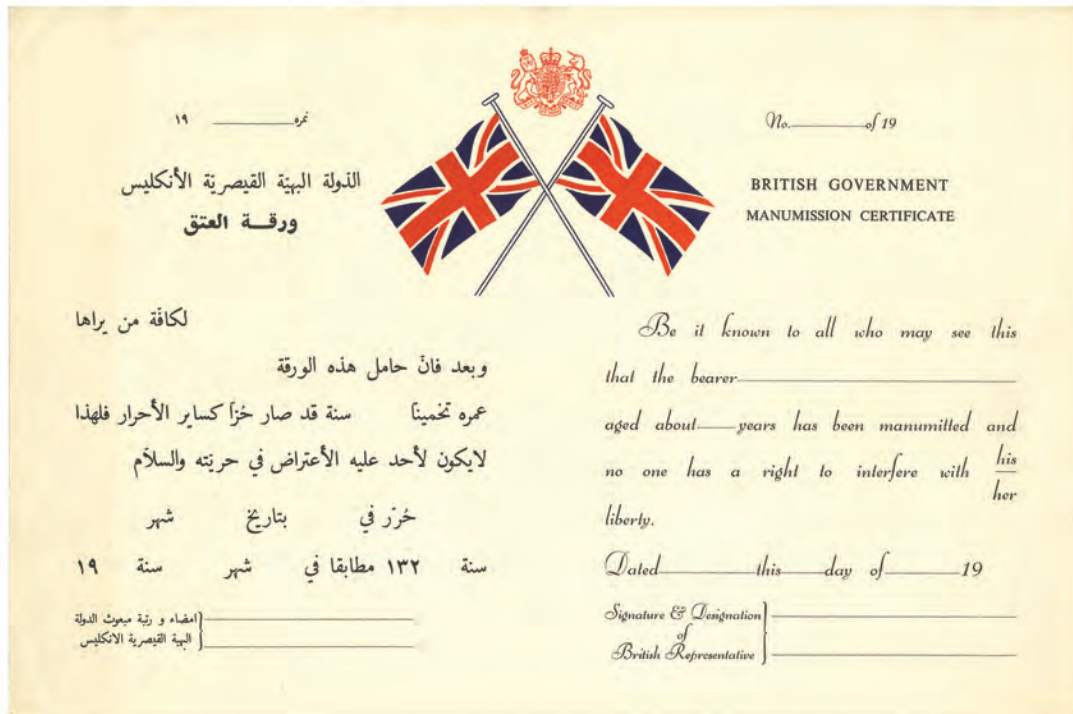 نمره ________ ١٩
الدولة البهيّة القيصريّة الأنكليس
ورقــة العتق
لكافّة من يراها
وبعد فانّ حامل هذه الورقة
عمره تخمينًا سنة قد صار حُرّا كساير الأحرار فلهذا
لايكون لأحد عليه الأعتراض في حريّته والسلاّم
حُرّر في بتاريخ شهر
سنة ١٣٢ مطابقا في شهر سنة ١٩
امضاء و رتبة مبعوث الدولة
البهية القيصرية الانكليس
No. ________ of 19
BRITISH GOVERNMENT
MANUMISSION CERTIFICATE
Be it known to all who may see this
that the bearer ________
aged about ____ years has been manumitted and
no one has a right to interfere with his
her
liberty.
Dated ________ this ____ day of ________ 19
Signature & Designation
of
British Representative